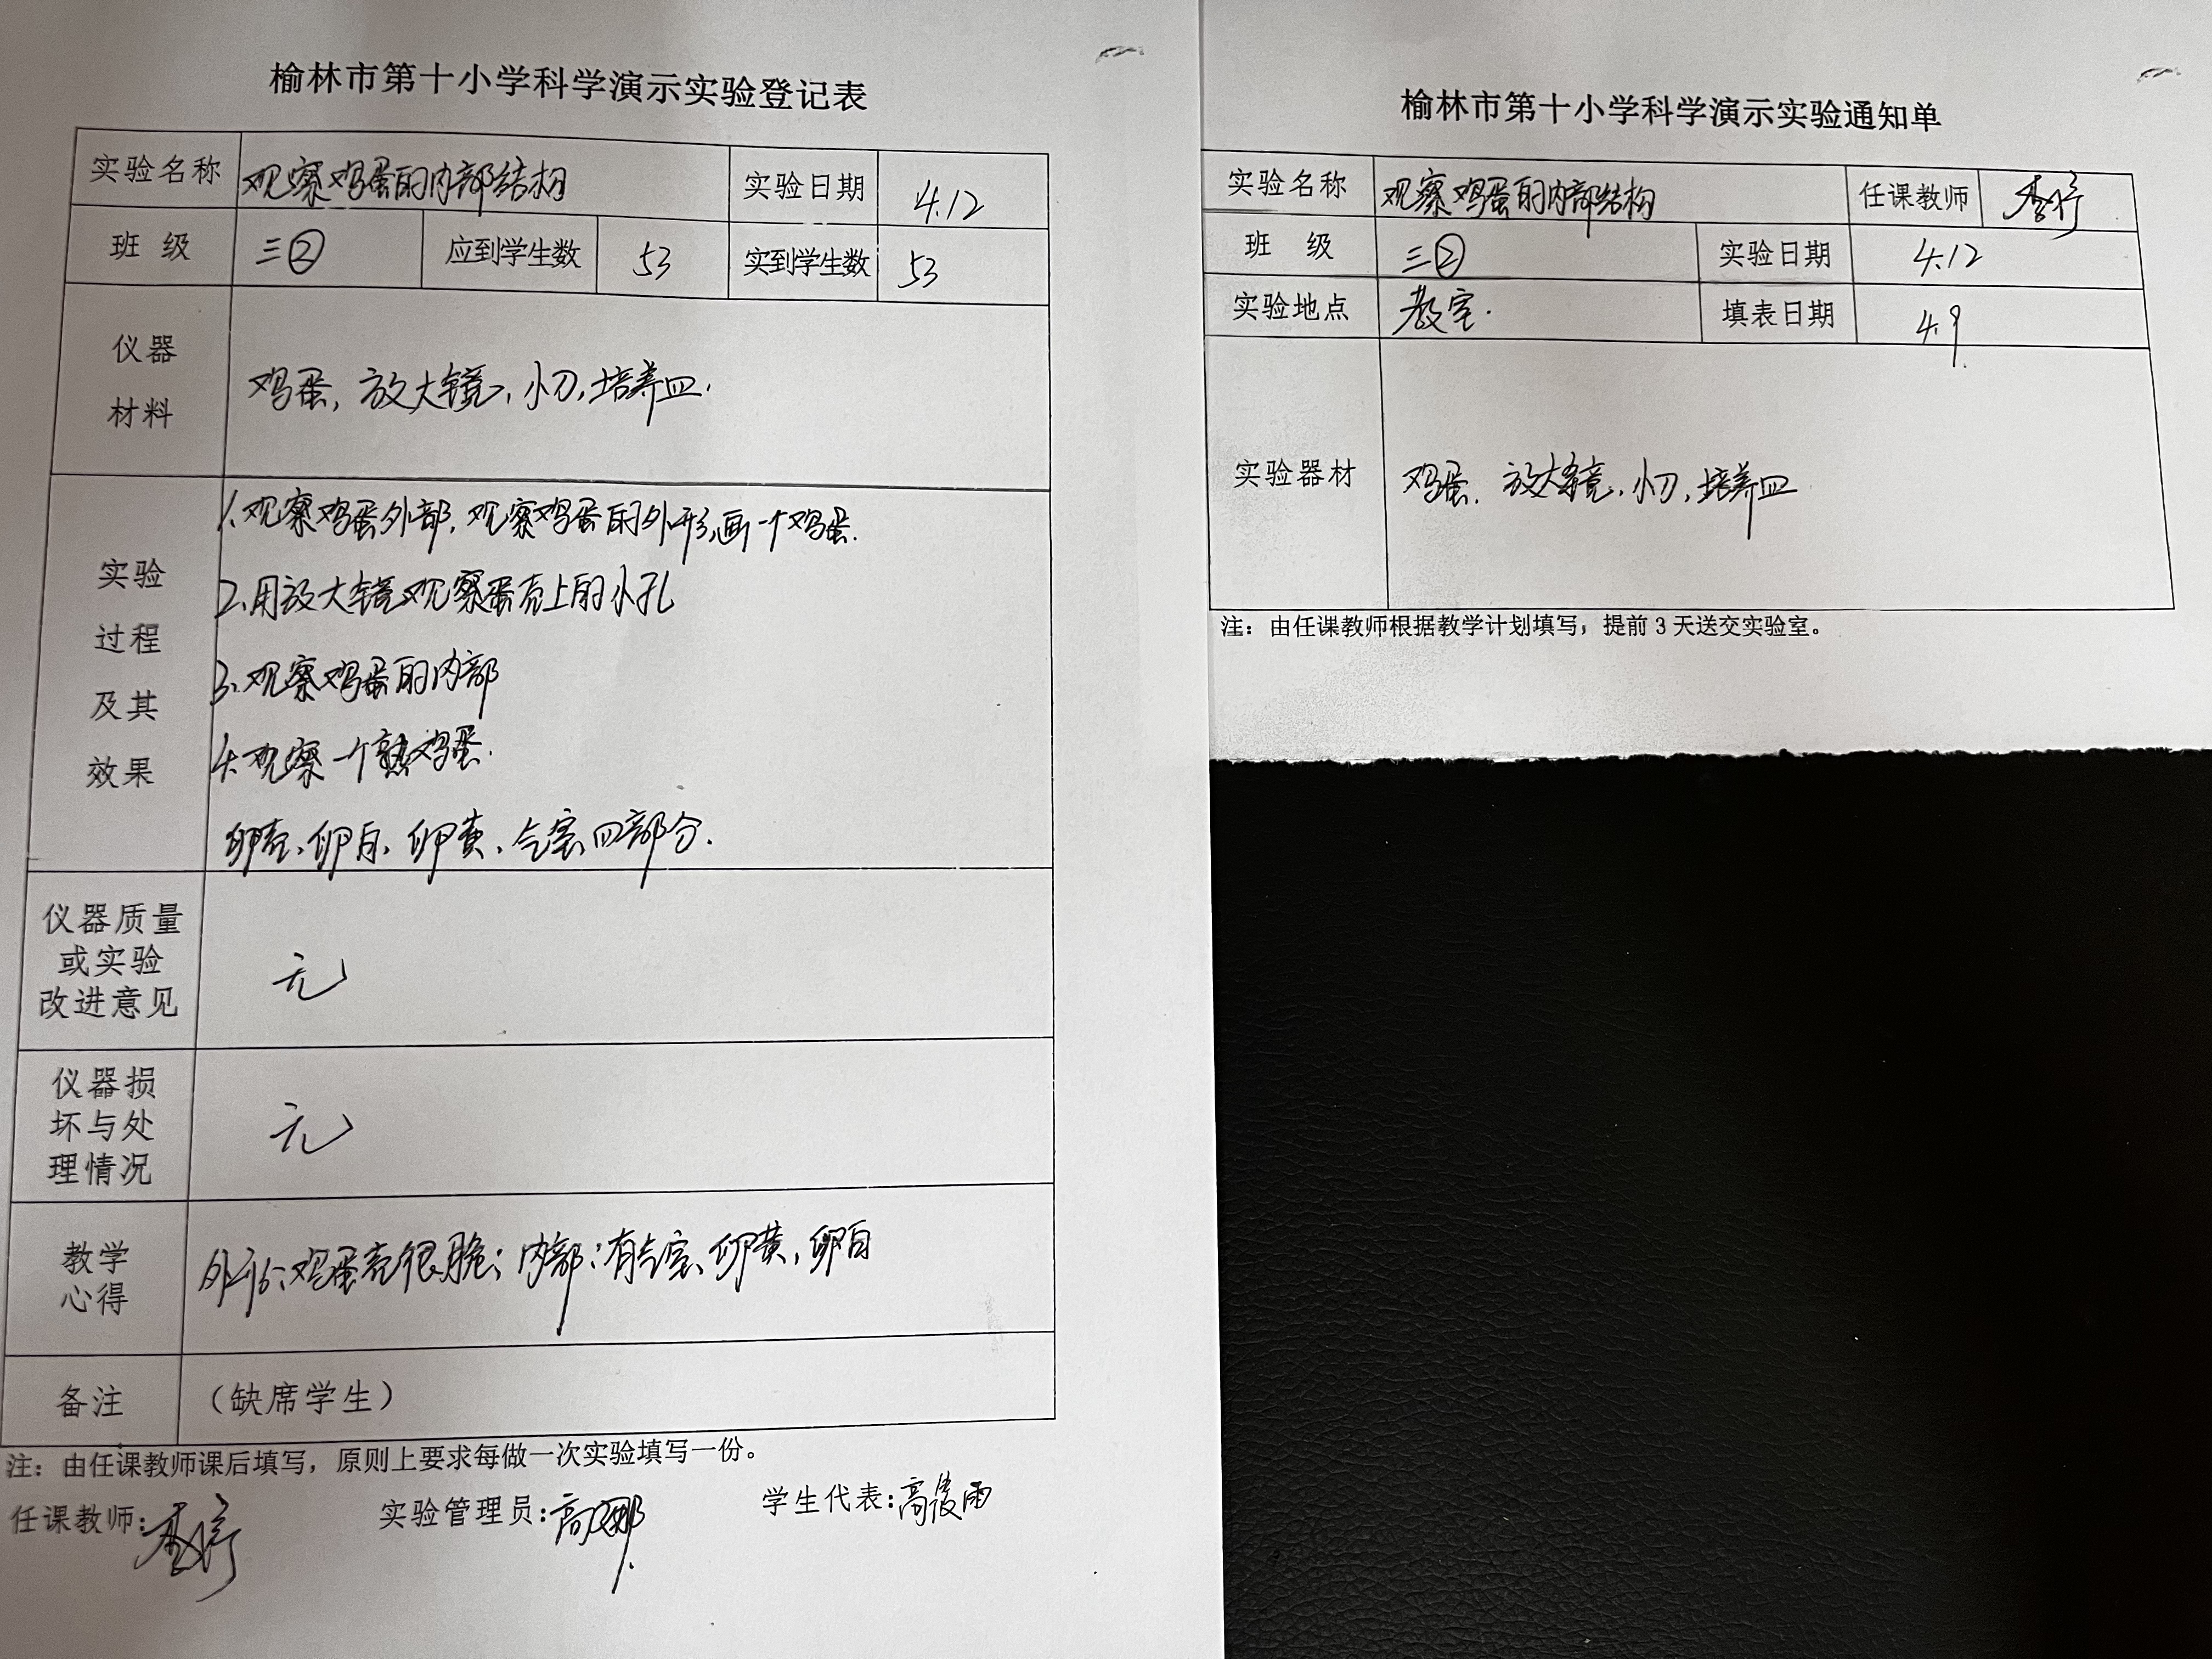 榆林市第十小学科学演示实验登记表
实验名称 观察鸡蛋的内部结构 实验日期 4.12
班 级 三② 应到学生数 53 实到学生数 53
仪器
材料
鸡蛋, 放大镜, 小刀, 培养皿.
实验
过程
及其
效果
1.观察鸡蛋外部, 观察鸡蛋的外形,画一个鸡蛋.
2.用放大镜观察蛋壳上的小孔
3.观察鸡蛋的内部
4.观察一个熟鸡蛋.
卵壳、卵白、卵黄、气室四部分.
仪器质量
或实验
改进意见
无
仪器损
坏与处
理情况
无
教学
心得
外形:鸡蛋壳很脆; 内部:有气室、卵黄,卵白
备注 (缺席学生)
注:由任课教师课后填写,原则上要求每做一次实验填写一份。
任课教师: 实验管理员:高娜 学生代表:高俊雨
榆林市第十小学科学演示实验通知单
实验名称 观察鸡蛋的内部结构 任课教师
班 级 三② 实验日期 4.12
实验地点 教室. 填表日期 4.9.
实验器材 鸡蛋. 放大镜, 小刀, 培养皿
注:由任课教师根据教学计划填写,提前3天送交实验室。